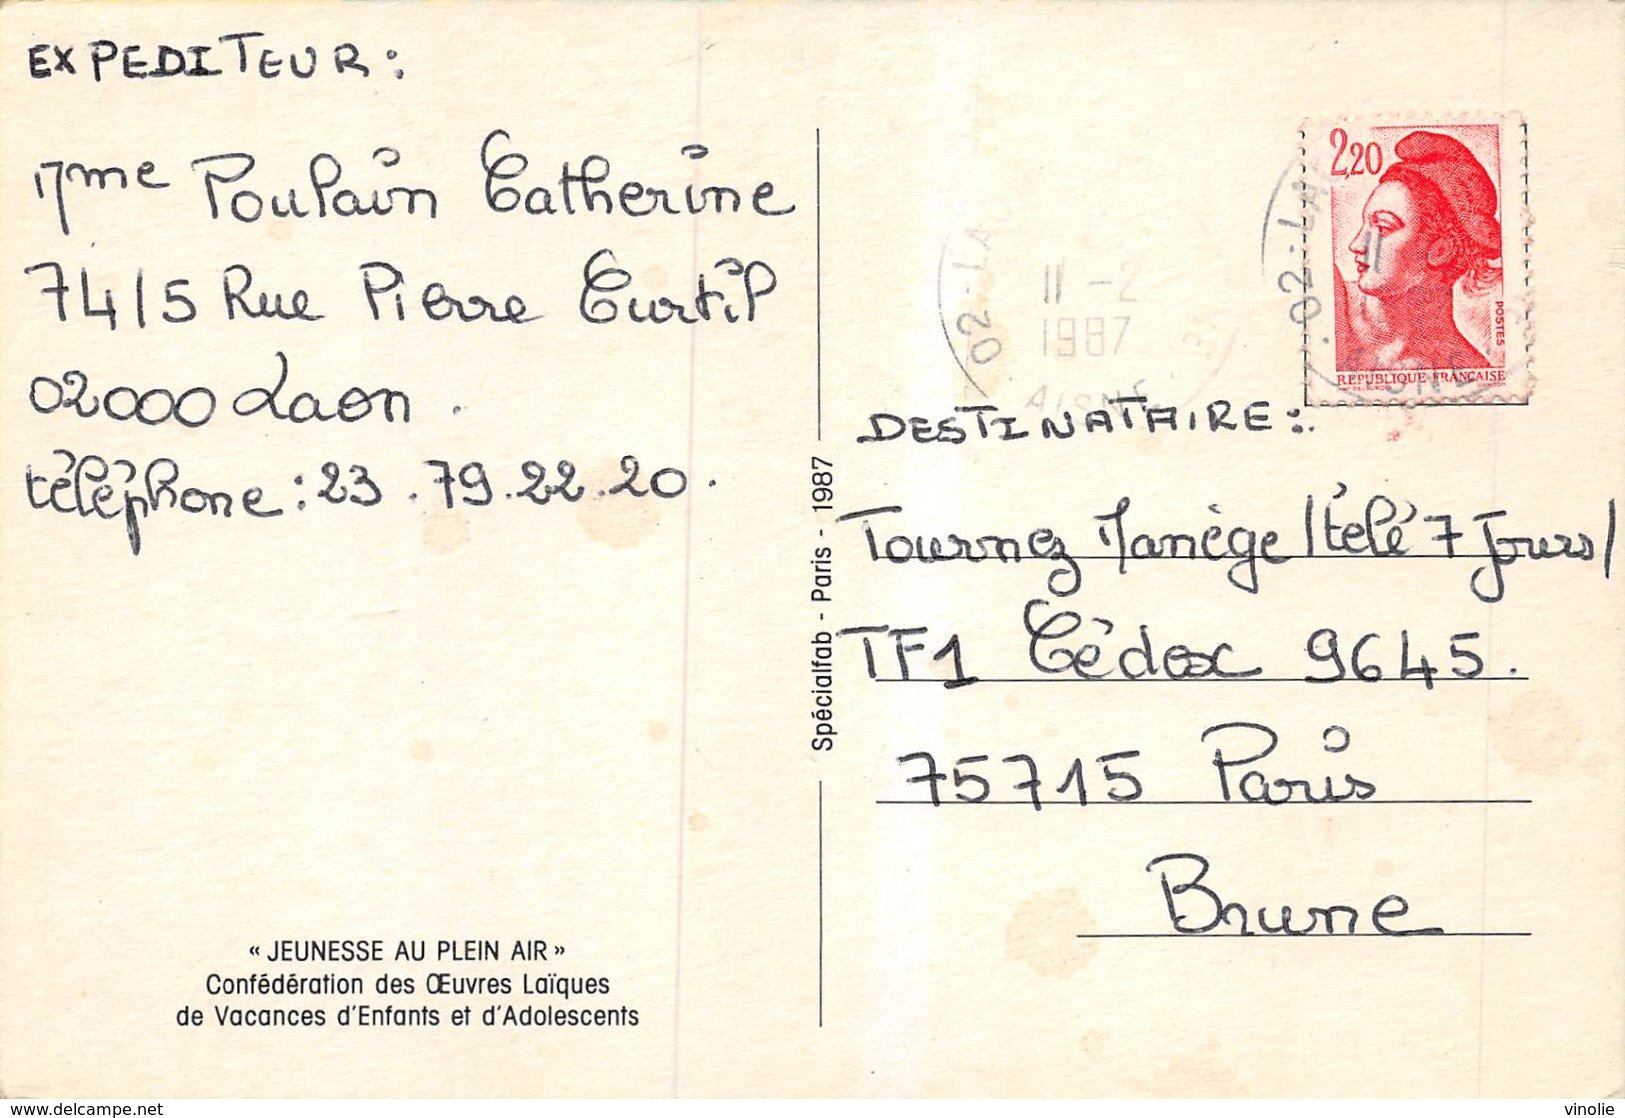 EXPEDITEUR:
Mme Poulain Catherine
74/5 Rue Pierre Curtil
02000 Laon.
téléphone: 23.79.22.20.
« JEUNESSE AU PLEIN AIR »
Confédération des Œuvres Laïques
de Vacances d'Enfants et d'Adolescents
Spécialfab - Paris - 1987
2,20
POSTES
REPUBLIQUE FRANÇAISE
02-LA
11-2
1987
AISNE
02-LA
AISNE
DESTINATAIRE:
Tournez Manège / télé 7 Jours /
TF1 Cédex 9645.
75715 Paris
Brune
delcampe.net
vinolie